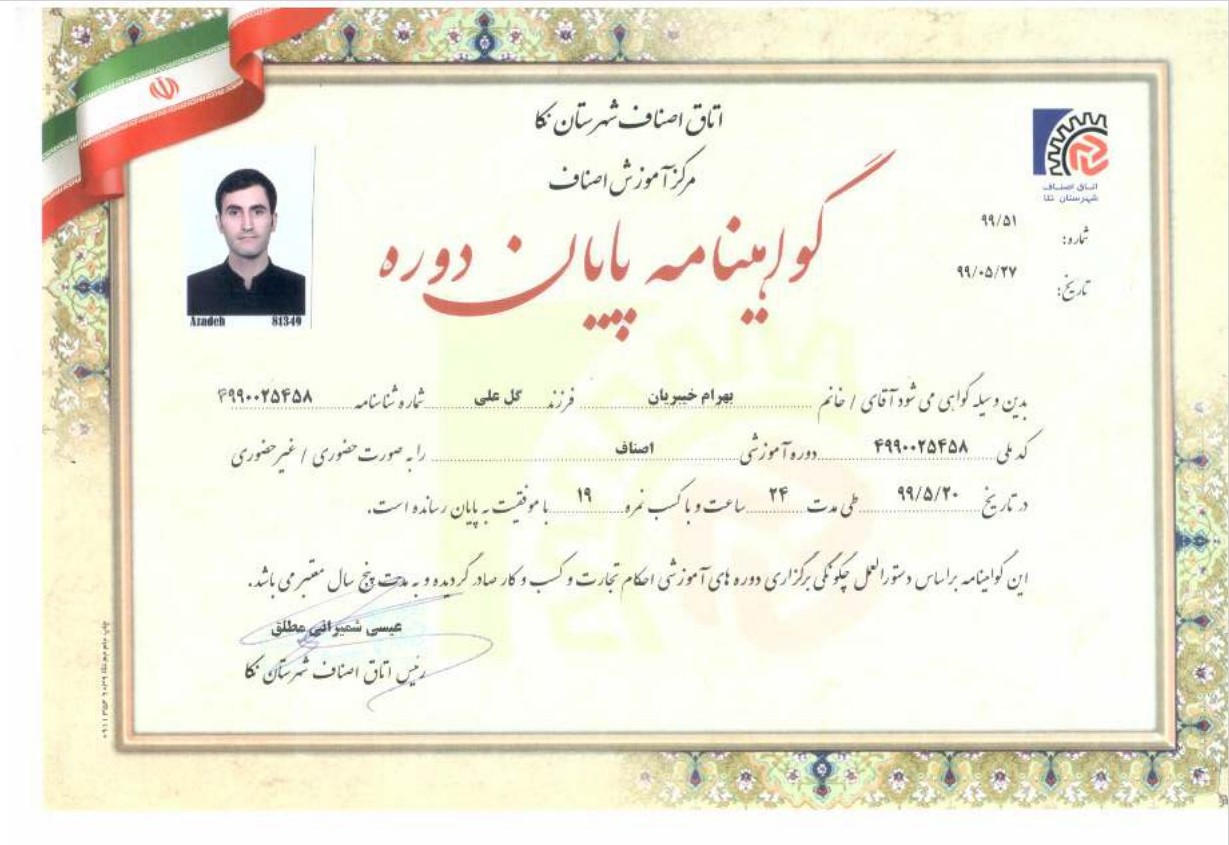 اتاق اصناف شهرستان نکا
مرکز آموزش اصناف
گواهینامه پایان دوره
اتاق اصناف
شهرستان نکا
شماره: ۹۹/۵۱
تاریخ: ۹۹/۰۵/۲۷
Azadeh 81349
بدین وسیله گواهی می شود آقای / خانم بهرام خیبریان فرزند گل علی شماره شناسنامه ۴۹۹۰۰۲۵۴۵۸
کد ملی ۴۹۹۰۰۲۵۴۵۸ دوره آموزشی اصناف را به صورت حضوری / غیر حضوری
در تاریخ ۹۹/۵/۲۰ طی مدت ۲۴ ساعت و با کسب نمره ۱۹ با موفقیت به پایان رسانده است.
این گواهینامه براساس دستورالعمل چگونگی برگزاری دوره های آموزشی احکام تجارت و کسب و کار صادر گردیده و به مدت پنج سال معتبر می باشد.
عیسی شمیرانی مطلق
رئیس اتاق اصناف شهرستان نکا